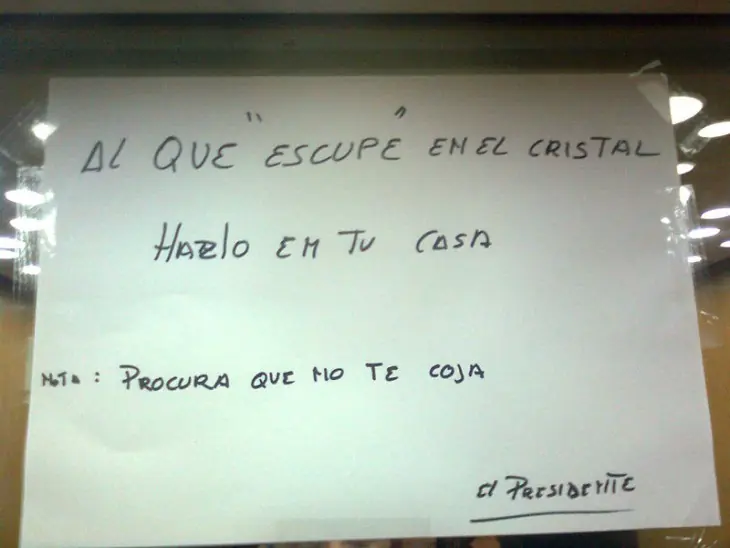 AL QUE "ESCUPE" EN EL CRISTAL
HAZLO EN TU CASA
NOTA: PROCURA QUE NO TE COJA
El PRESIDENTE